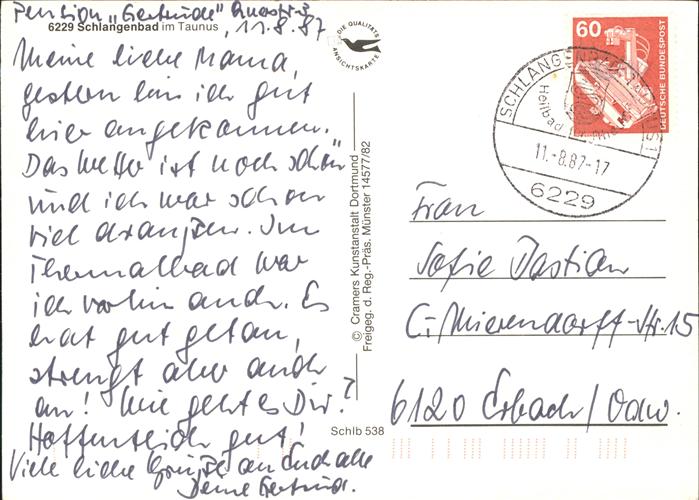 Pension "Gertrude"
11.8.87
6229 Schlangenbad im Taunus
Meine liebe Mama,
gestern bin ich gut
hier angekommen.
Das Wetter ist noch schön
und ich war schon
viel draußen. Im
Thermalbad war
ich vorhin auch. Es
hat gut getan,
strengt aber auch
an! Wie geht es Dir?
Hoffentlich gut!
Viele liebe Grüße an Euch alle
Deine Gertrud.
DIE QUALITÄTS
ANSICHTSKARTE
© Cramers Kunstanstalt Dortmund
Freigeg. d. Reg.-Präs. Münster 14577/82
Schlb 538
60
DEUTSCHE BUNDESPOST
SCHLANGENBAD
Heilbad
11.-8.87-17
6229
Frau
Sofie Bastian
C.-Mierendorff-Str. 15
6120 Erbach/Odw.